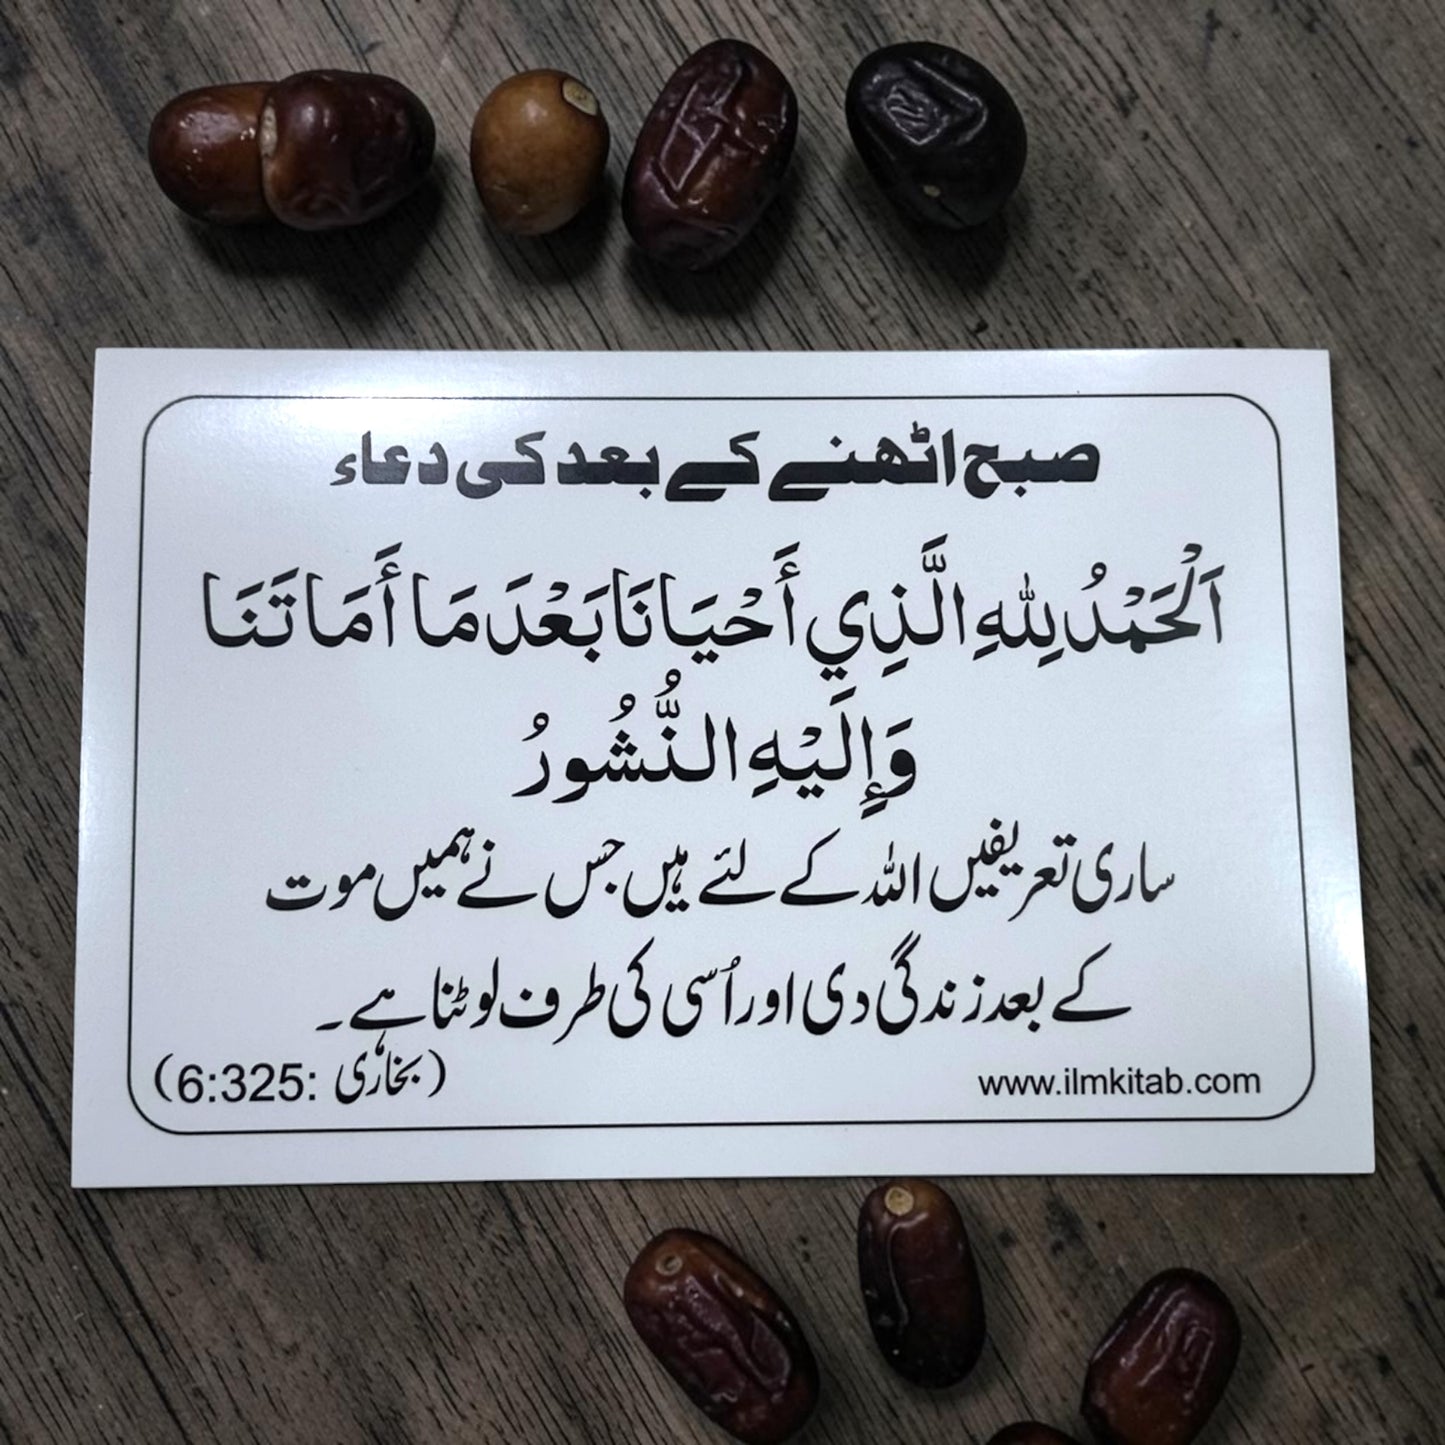 صبح اٹھنے کے بعد کی دعاء
اَلْحَمْدُ لِلّٰهِ الَّذِي أَحْيَانَا بَعْدَ مَا أَمَاتَنَا
وَإِلَيْهِ النُّشُورُ
ساری تعریفیں اللہ کے لئے ہیں جس نے ہمیں موت
کے بعد زندگی دی اور اُسی کی طرف لوٹنا ہے۔
(بخاری :6:325)
www.ilmkitab.com